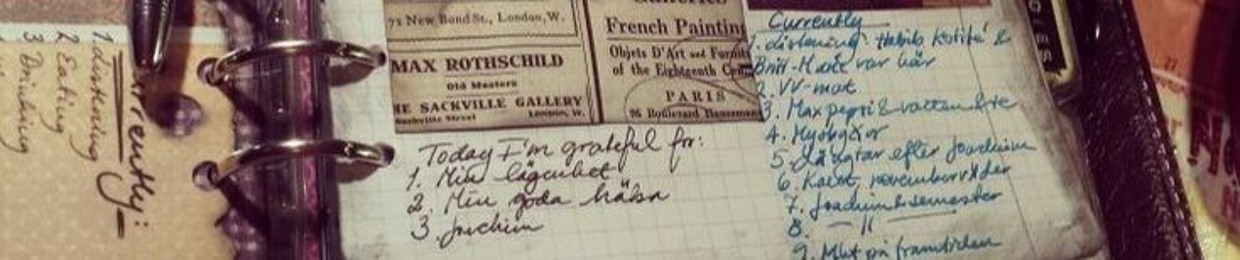 Currently:
1. Listening
2 Eating
3 Drinking
72 New Bond St., London, W.
MAX ROTHSCHILD
Old Masters
THE SACKVILLE GALLERY
Sackville Street LONDON, W.
Galleries
French Painting
Objets D'Art and Furnitu
of the Eighteenth Cen
PARIS
26 Boulevard Haussmann
Today I'm grateful for:
1. Min lägenhet
2. Min goda hälsa
3. Joachim
Currently
1. Listening: Habib Koité &
Britt-Marie var här
2. VV-mat
3. Max pepsi & vatten
4. Mysbyxor
5. Längtar efter Joachim
6. Kallt novemberväder
7. Joachims semester
8. — 11 —
9. Mot på framtiden